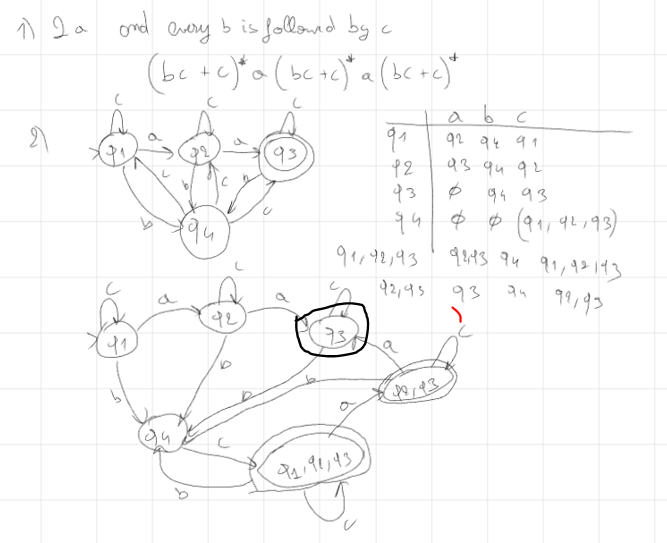 1) 2a and every b is followed by c
(bc + c)* a (bc + c)* a (bc + c)*
2)
c c c
q1 a q2 a q3
c b c b c
b q4
a b c
q1 q2 q4 q1
q2 q3 q4 q2
q3 ∅ q4 q3
q4 ∅ ∅ (q1, q2, q3)
q1, q2, q3 q2,q3 q4 q1, q2, q3
q2, q3 q3 q4 q2, q3
c c c
q1 a q2 a q3
a c
b b b b q2, q3
q4 c a
q1, q2, q3
b c